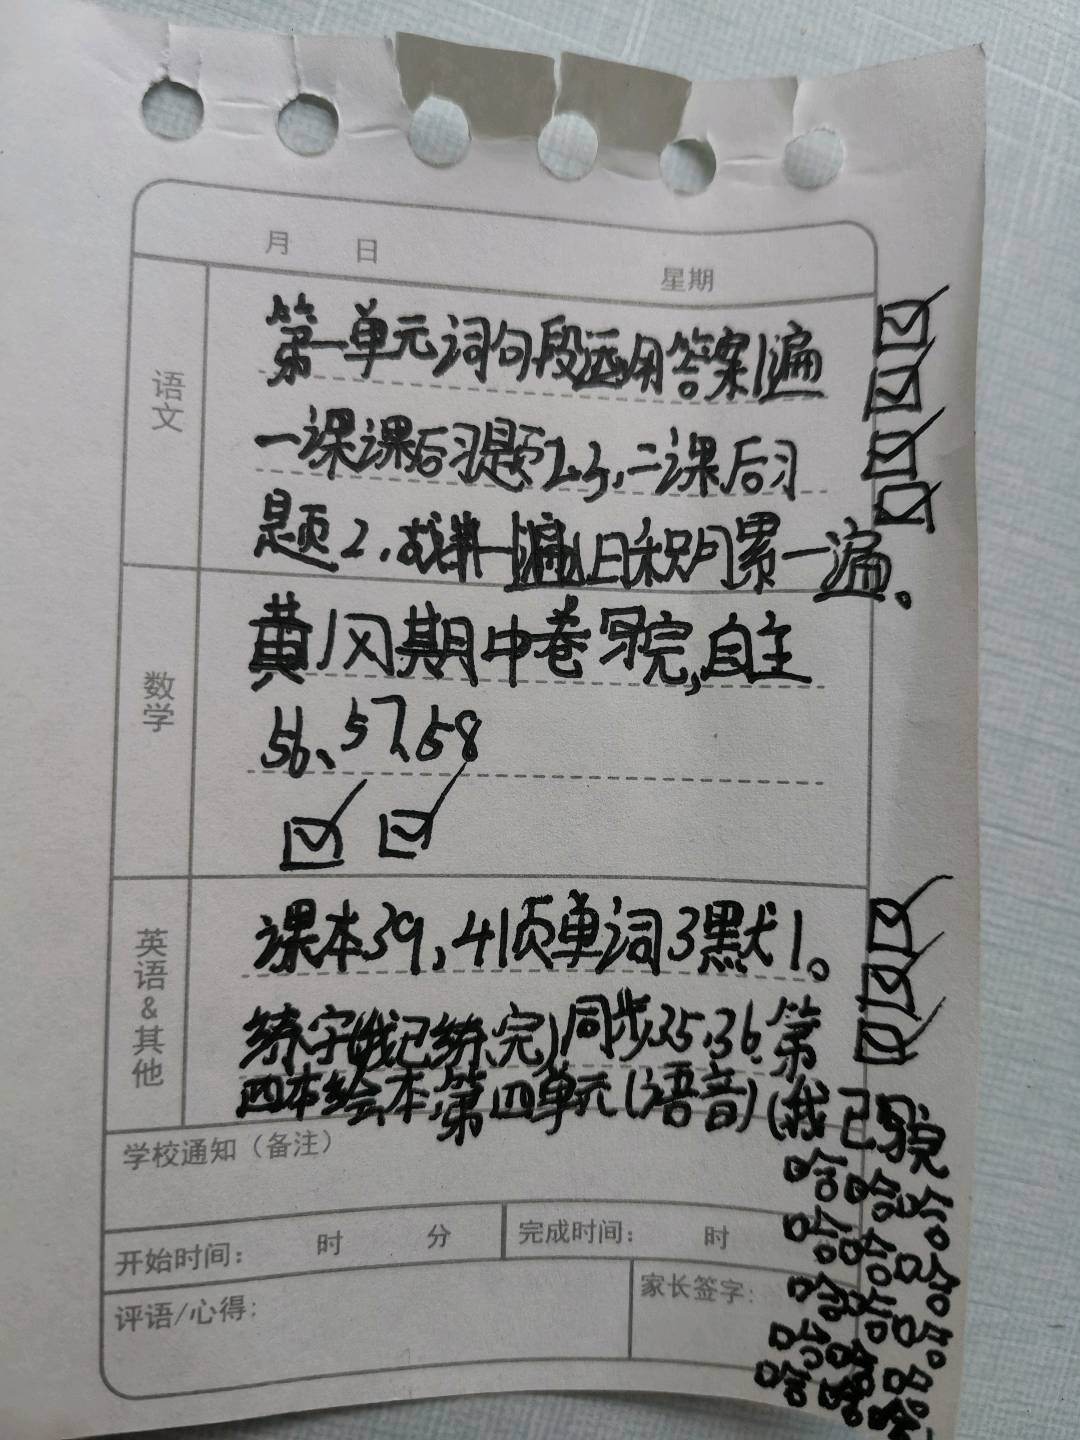 月 日 星期
语文
第一单元词句段运用答案1遍
一课课后习题2.3,二课后习
题2,
日积月累一遍。
数学
黄冈期中卷写完,自主
56、57、58
英语&其他
课本39,41页单词3默1。
练字(我已练完)同步35.36.第
四本绘本,第四单元(语音)(我已写完
哈哈哈
哈哈哈
哈哈
哈哈
哈哈
学校通知(备注)
开始时间: 时 分 完成时间: 时
评语/心得: 家长签字: